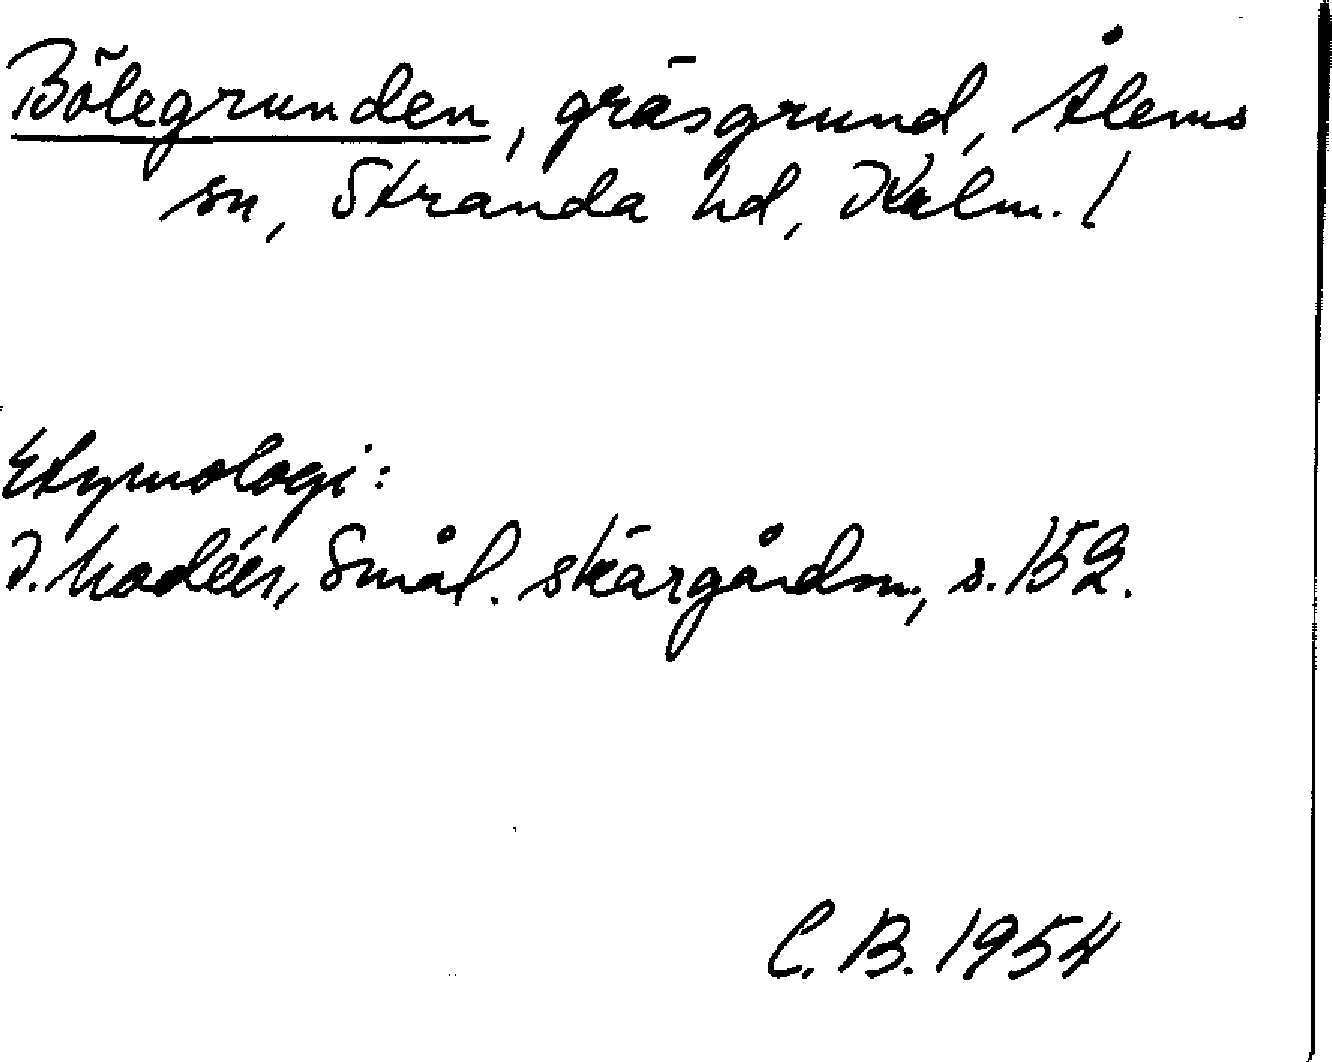 Bölegrunden, gräsgrund, Ålems
sn, Stranda hd, Kalm. l
Etymologi:
I. Modéer, Smål. skärgårdsn., s. 152.
C. B. 1954